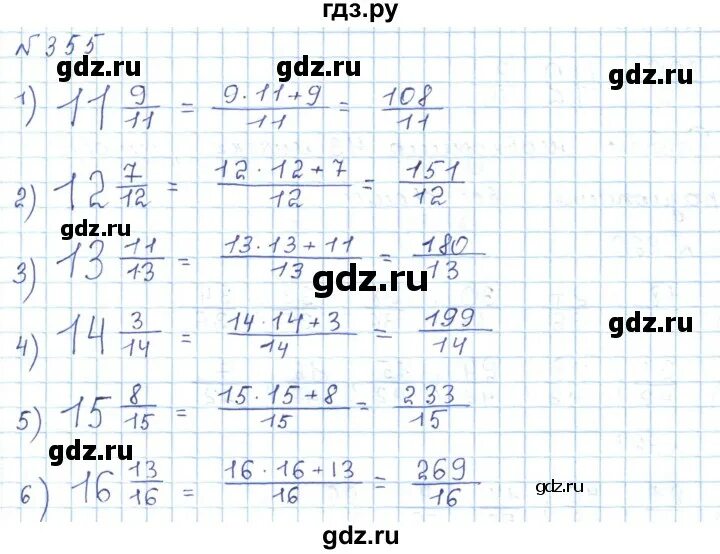 гдз.ру
№355
gdz.ru gdz.ru
1) 11 9/11 = 9·11+9/11 = 108/11
2) 12 7/12 = 12·12+7/12 = 151/12
gdz.ru gdz.ru
3) 13 11/13 = 13·13+11/13 = 180/13
gdz.ru
4) 14 3/14 = 14·14+3/14 = 199/14
gdz.ru gdz.ru
5) 15 8/15 = 15·15+8/15 = 233/15
gdz.ru gdz.ru
6) 16 13/16 = 16·16+13/16 = 269/16
gdz.ru
gdz.ru